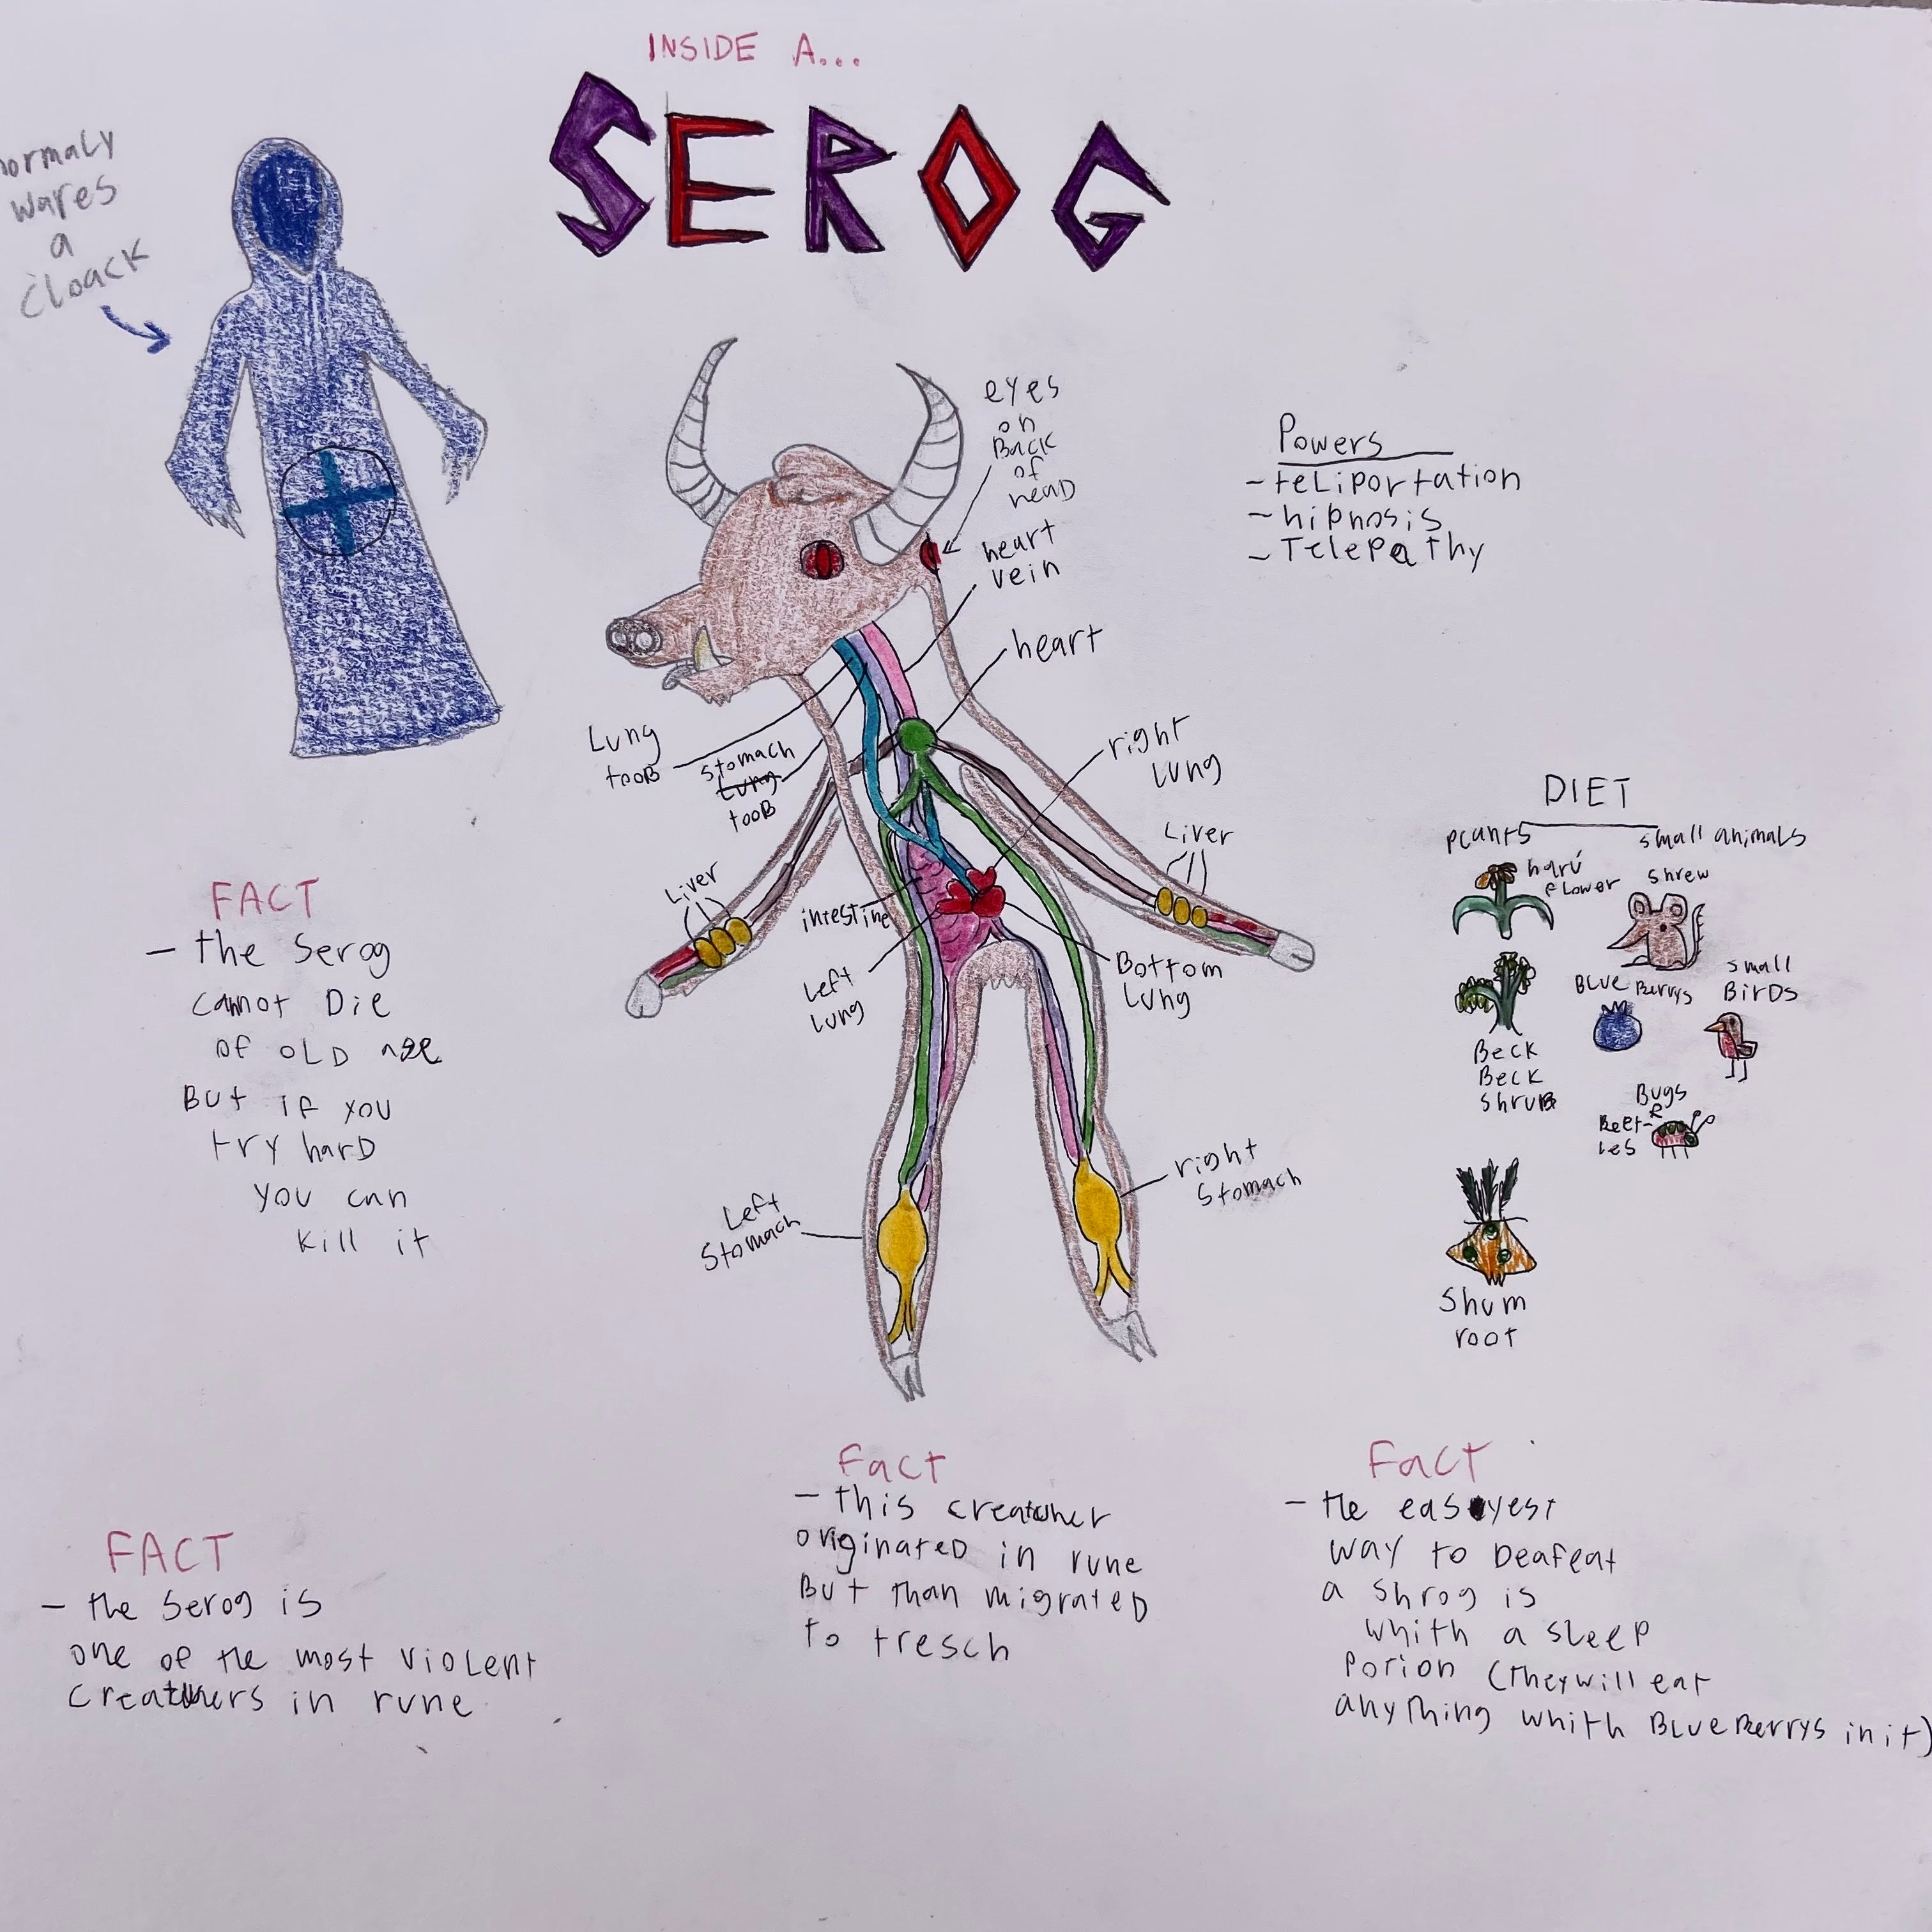 INSIDE A...
SEROG
normaly
wares
a
cloack
eyes
on
BACK
of
heaD
heart
vein
heart
Powers
- teLiportation
- hipnosis
- TelePaThy
Lung
tooB
stomach
Lung
tooB
right
Lung
Liver
Liver
intestine
Left
Lung
Bottom
Lung
Left
Stomach
right
Stomach
DIET
pLants
small animals
harú
fLower
Shrew
BLUE Berrys
small
BirDs
Beck
Beck
ShruB
Bugs
&
Beet-
les
Shum
root
FACT
- the Serog
cannot Die
of oLD age
But if you
try harD
you can
kill it
FACT
- the Serog is
one of the most VioLent
creatuers in rune
Fact
- this creatuher
originateD in rune
But than migrateD
to tresch
Fact
- the easyyest
way to Deafeat
a Shrog is
whith a sleep
Potion (they will eat
anything whith BLueBerrys in it)